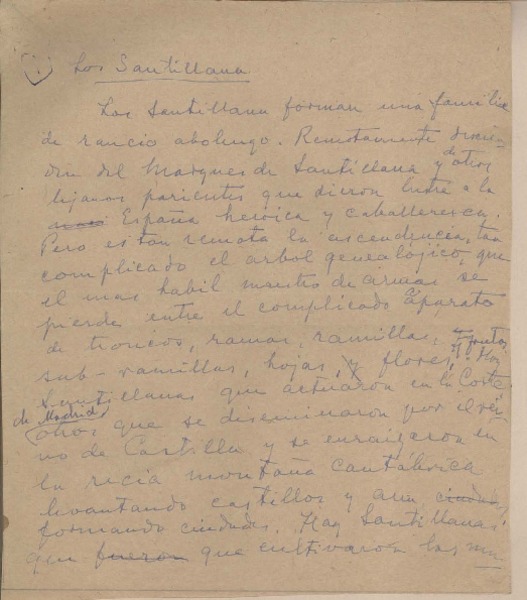 1) Los Santillana
Los Santillana forman una familia
de rancio abolengo. Remotamente descien-
den del Marques de Santillana y de otros
lejanos parientes que dieron lustre a la
España heróica y caballeresca.
Pero es tan remota la ascendencia, tan
complicado el arbol genealógico que
el mas habil maestro de armas se
pierde entre el complicado aparato
de troncos, ramas, ramillas,
sub-ramillas, hojas, y flores, y frutos. Hay
Santillanas que actuaron en la Corte
de Madrid
otros que se diseminaron por el rei-
no de Castilla y se enraizaron en
la recia montaña cantábrica
levantando castillos y aun ciudades
formando ciudades. Hay Santillanas
que fueron que cultivaron las mu